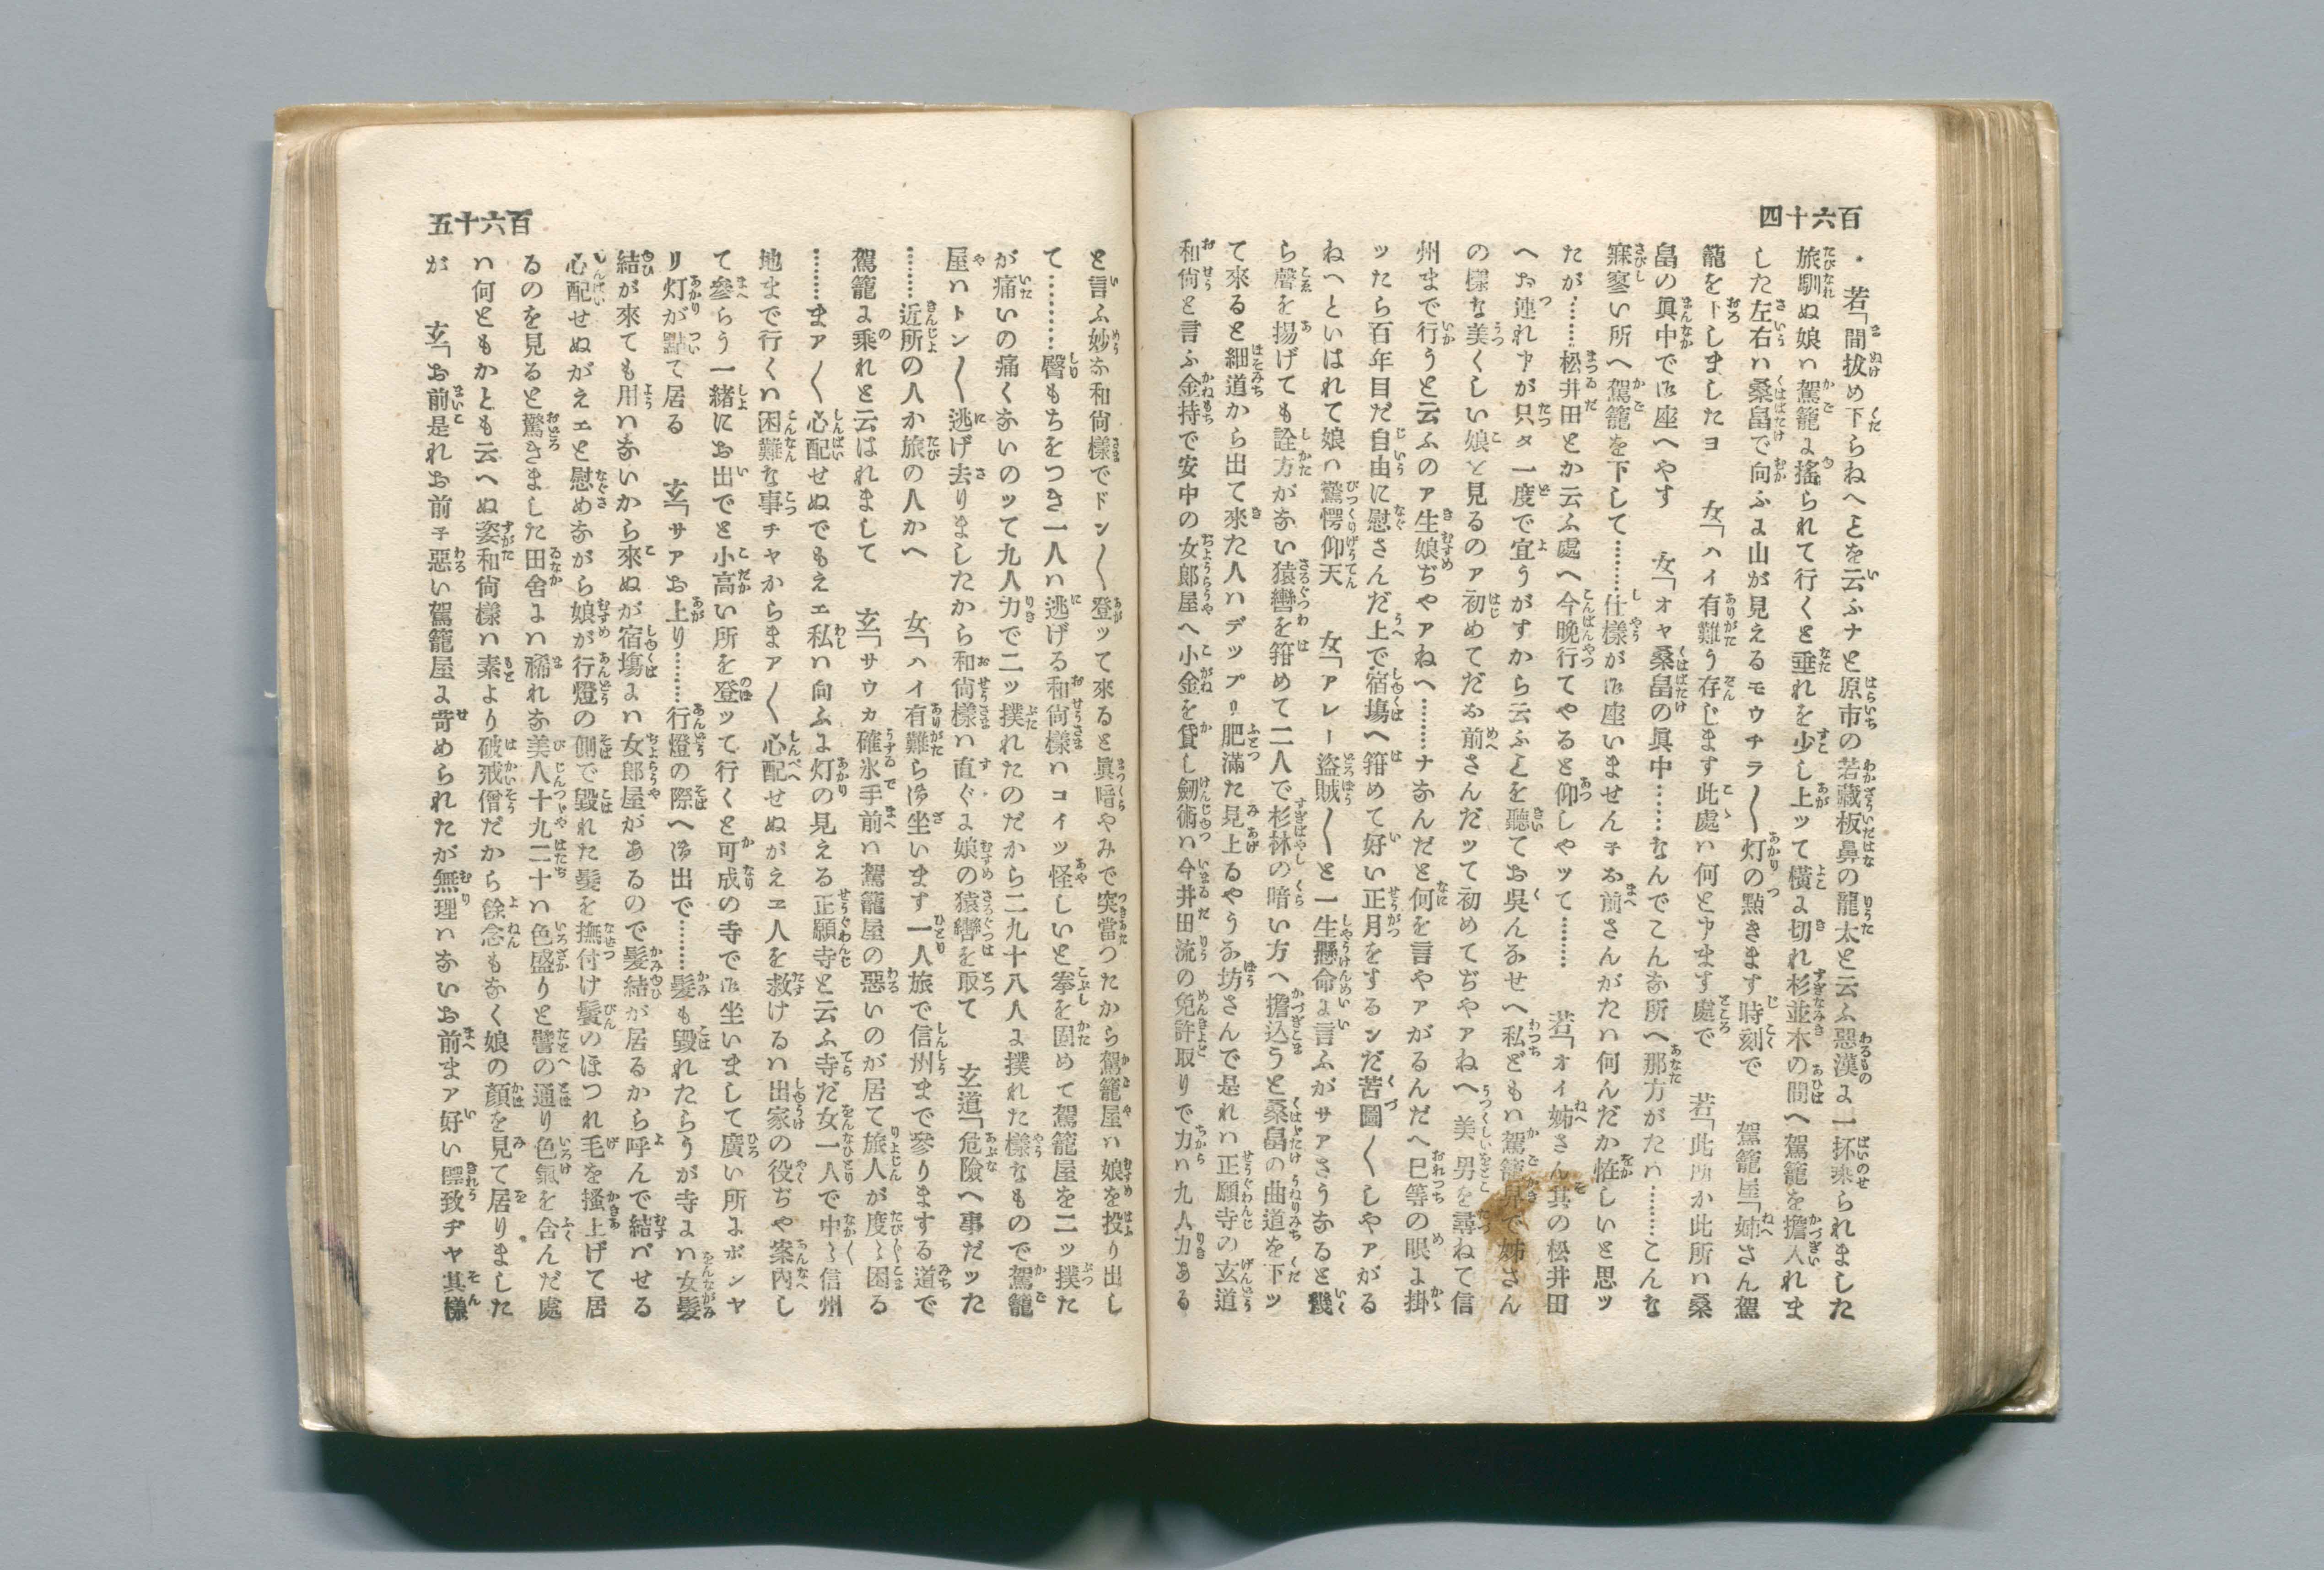 百六十四
若「間拔め下らねへことを云ふナと原市の若藏板鼻の龍太と云ふ惡漢よ一抔乘られました
旅馴ぬ娘ハ駕籠よ搖られて行くと垂れを少し上ッて橫よ切れ杉並木の間へ駕籠を擔入れま
した左右ハ桑畠で向ふよ山が見えるモウチラ〱灯の點きます時刻で　駕籠屋「姉さん駕
籠を下しましたヨ　女「ハイ有難う存じます此處ハ何と申ます處で　若「此所か此所ハ桑
畠の眞中で御座へやす　女「オャ桑畠の眞中……なんでこんな所へ那方がたハ………こんな
寐寥い所へ駕籠を下して………仕樣が御座いませんチお前さんがたハ何んだか恠しいと思ッ
たが………松井田とか云ふ處へ今晩行てやると仰しやッて………　若「オイ姉さん其の松井田
へお連れ申が只タ一度で宜うがすから云ふことを聽てお呉んなせへ私どもハ駕籠舁で姉さん
の樣な美くしい娘と見るのァ初めてだお前さんだッて初めてぢやァねへ美男を尋ねて信
州まで行うと云ふのァ生娘ぢやァねへ………ナなんだと何を言やァがるんだへ巳等の眼よ掛
ッたら百年目だ自由に慰さんだ上で宿塲へ箝めて好い正月をするンだ苦圖〱しやァがる
ねへといはれて娘ハ驚愕仰天　女「アレー盜賊〱と一生懸命よ言ふがサァさうなると幾
ら聲を揚げても詮方がない猿轡を箝めて二人で杉林の暗い方へ擔込うと桑畠の曲道を下ッ
て來ると細道から出て來た人ハデップリ肥滿た見上るやうな坊さんで是れハ正願寺の玄道
和尙と言ふ金持で安中の女郎屋へ小金を貸し劒術ハ今井田流の免許取りで力ハ九人力ある
百六十五
と言ふ妙な和尙樣でドン〱登ッて來ると眞暗やみで突當つたから駕籠屋ハ娘を投り出し
て………臀もちをつき一人ハ逃げる和尙樣ハコイツ怪しいと拳を固めて駕籠屋を二ッ撲た
が痛いの痛くないのッて九人力で二ッ撲れたのだから二九十八人よ撲れた樣なもので駕籠
屋ハトン〱逃げ去りましたから和尙樣ハ直ぐよ娘の猿轡を取て　玄道「危險へ事だッた
……近所の人か旅の人かへ　女「ハイ有難ら御坐います一人旅で信州まで參りまする道で
駕籠よ乘れと云はれまして　玄「サウカ確氷手前ハ駕籠屋の惡いのが居て旅人が度〻困る
……まァ〱心配せぬでもえェ私ハ向ふよ灯の見える正願寺と云ふ寺だ女一人で中〻信州
地まで行くハ困難な事チャからまァ〱心配せぬがえヱ人を救けるハ出家の役ぢや案內し
て參らう一緒にお出でと小高い所を登ッて行くと可成の寺で御坐いまして廣い所よポンヤ
リ灯が點て居る　玄「サアお上り………行燈の際へ御出で………髮も毀れたらうが寺よハ女髮
結が來ても用ハないから來ぬが宿塲よハ女郎屋があるので髮結が居るから呼んで結バせる
心配せぬがえェと慰めながら娘が行燈の側で毀れた髮を撫付け鬢のほつれ毛を搔上げて居
るのを見ると驚きました田舍よハ稀れな美人十九二十ハ色盛りと譬の通り色氣を含んだ處
ハ何ともかとも云へぬ姿和尙樣ハ素より破戒僧だから餘念もなく娘の顏を見て居りました
が　玄「お前是れお前チ惡い駕籠屋よ苛められたが無理ハないお前まァ好い標致ヂヤ其樣